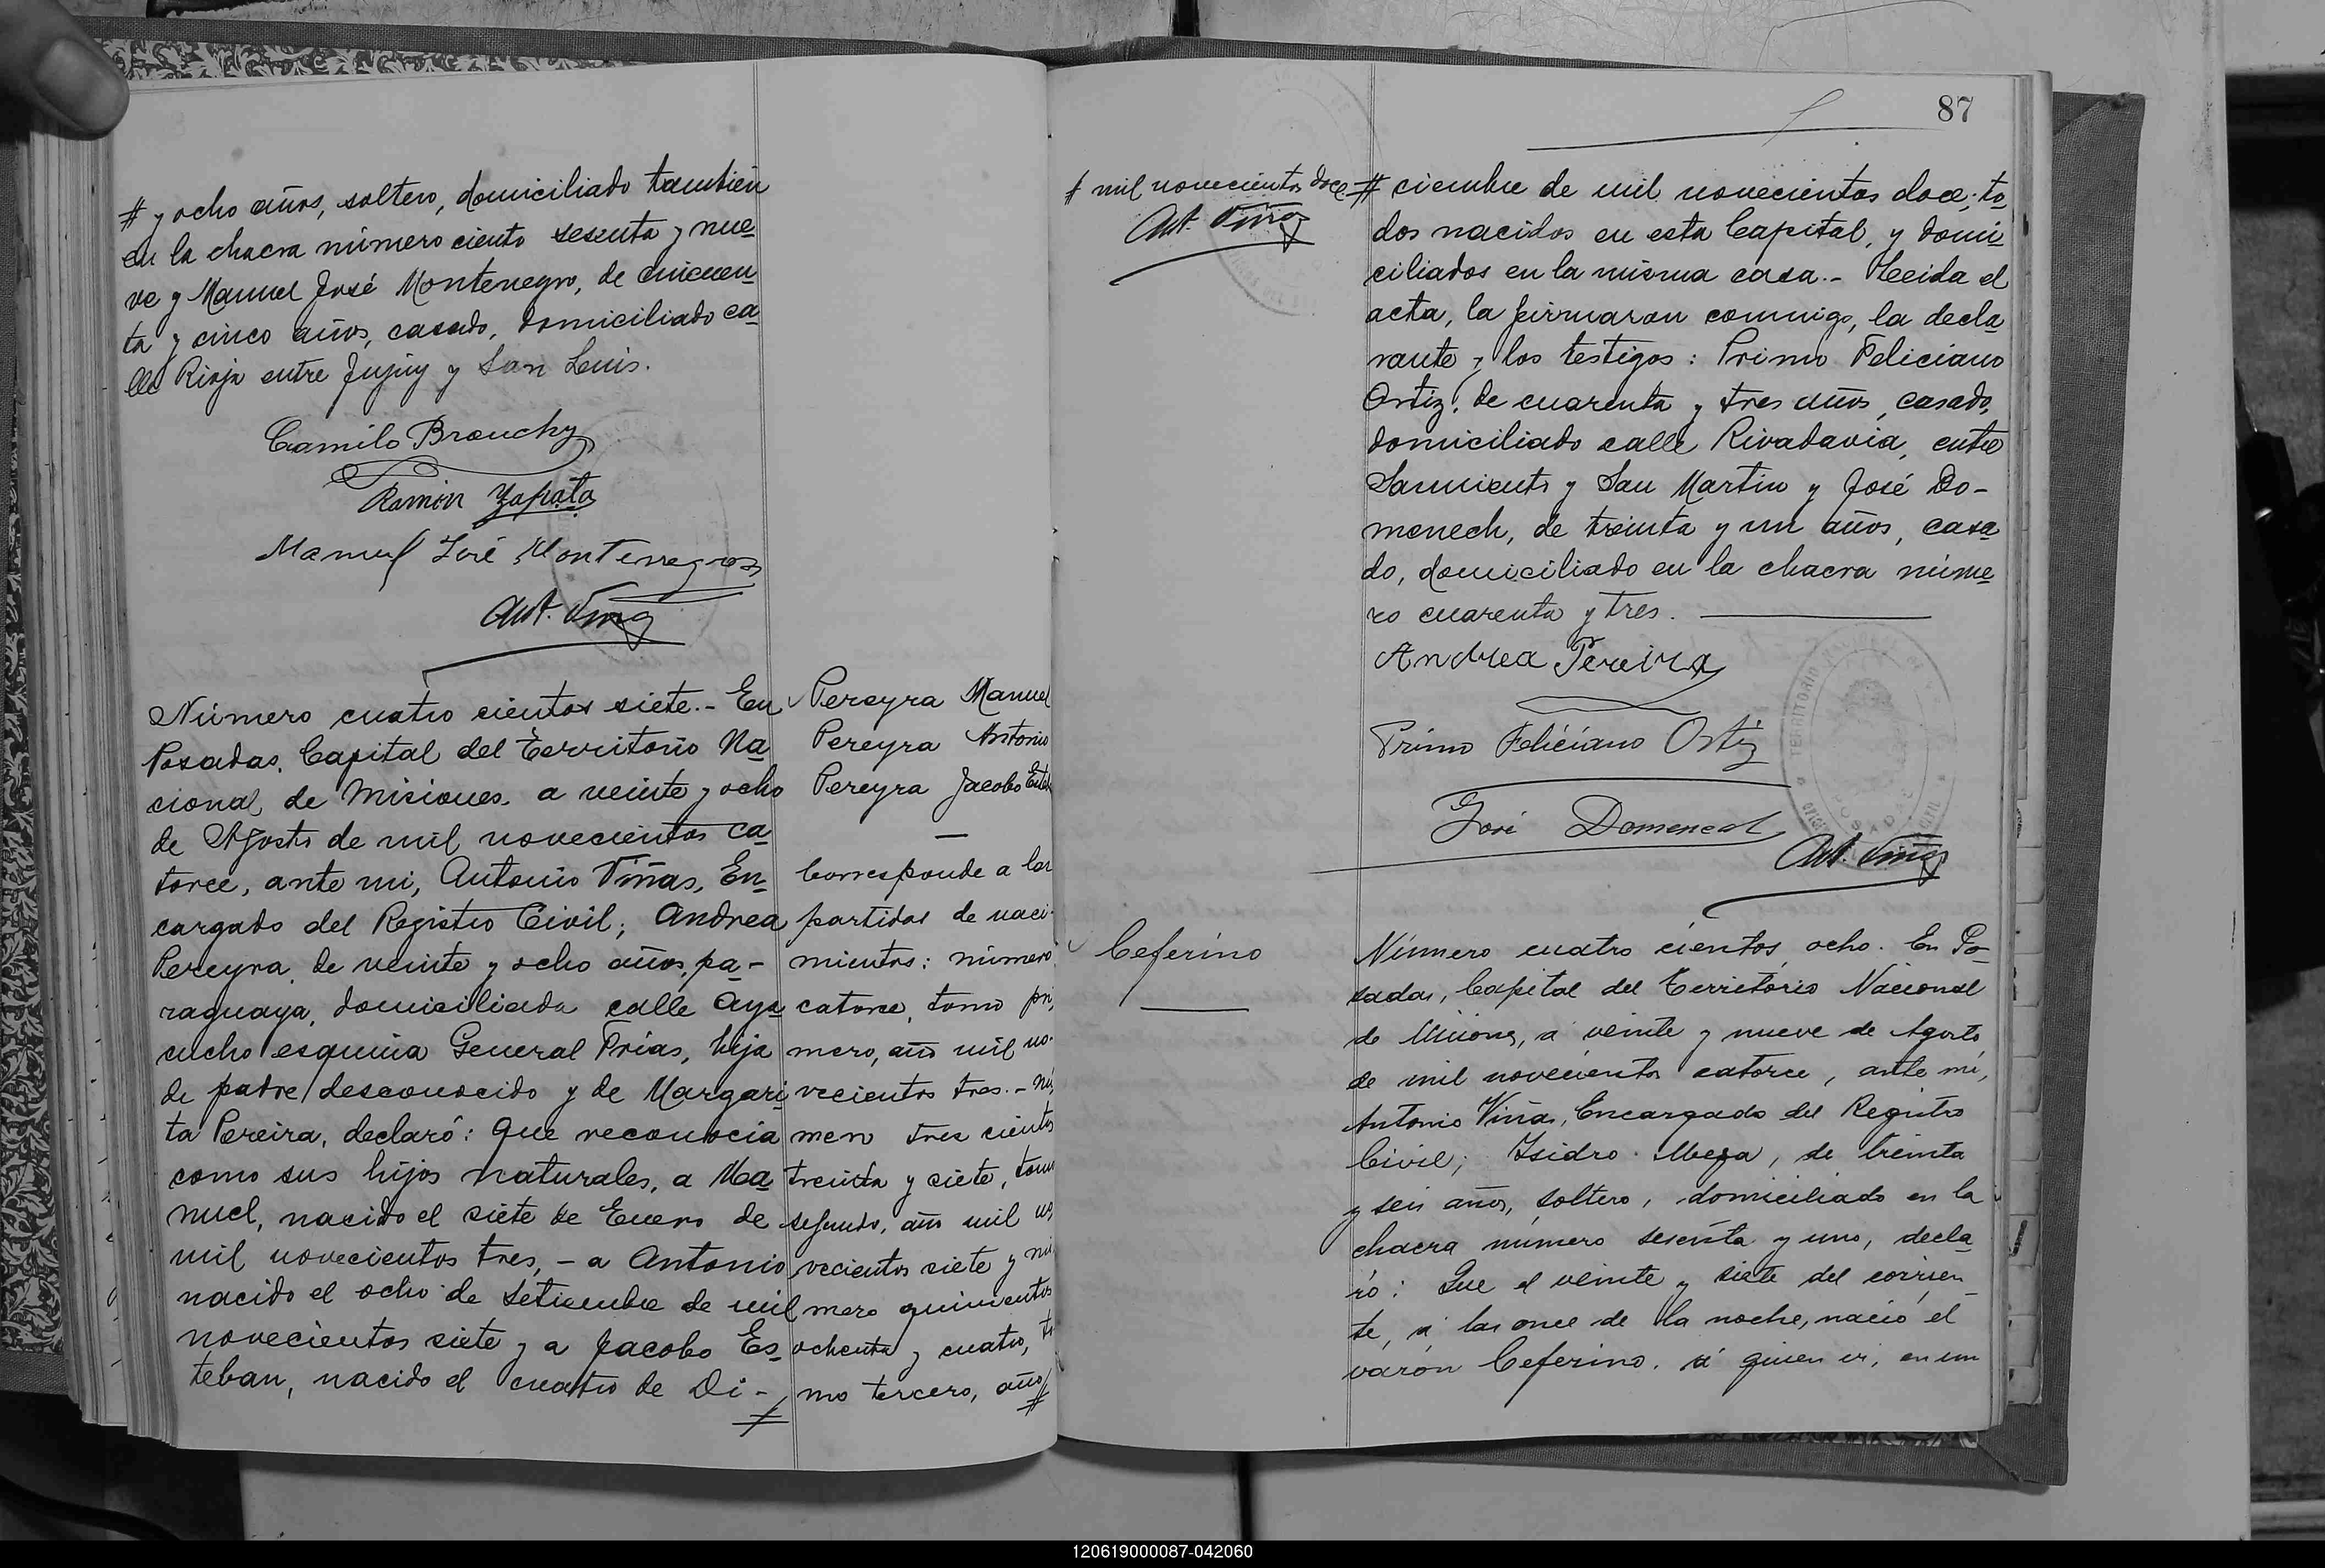 # y ocho años, soltero, domiciliado tambien
en la chacra número ciento sesenta y nue
ve y Manuel José Montenegro, de cincuen
ta y cinco años, casado, domiciliado ca
lle Rioja entre Jujuy y San Luis.
Camilo Brouchy
Ramón Zapata
Manuel José Montenegro
Ant. Viñas
Número cuatro cientos siete.- En
Posadas, Capital del Territorio Na
cional de Misiones, a veinte y ocho
de Agosto de mil novecientos ca
torce, ante mi, Antonio Viñas, En
cargado del Registro Civil; Andrea
Pereyra, de veinte y ocho años, pa-
raguaya, domiciliada calle Aya
cucho esquina General Frías, hija
de padre desconocido y de Margari
ta Pereira, declaró: Que reconocia
como sus hijos naturales, a Ma
nuel, nacido el siete de Enero de
mil novecientos tres, - a Antonio
nacido el ocho de Setiembre de mil
novecientos siete y a Jacobo Es
teban, nacido el cuatro de Di-
#
Pereyra Manuel
Pereyra Antonio
Pereyra Jacobo
Corresponde a las
partidas de naci-
mientos: número
catorce, tomo pri
mero, año mil no-
vecientos tres. - Nú
mero tres cientos
treinta y siete, tomo
segundo, año mil no
vecientos siete y nú
mero quinientos
ochenta y cuatro, to
mo tercero, año
#
87
# mil novecientos doce
Ant. Viñas
# ciembre de mil novecientos doce; to
dos nacidos en esta Capital, y domi
ciliados en la misma casa.- Leida el
acta, la firmaron conmigo, la decla
rante y los testigos: Primo Feliciano
Ortiz, de cuarenta y tres años, casado,
domiciliado calle Rivadavia, entre
Sarmiento y San Martin y José Do-
menech, de treinta y un años, casa
do, domiciliado en la chacra núme
ro cuarenta y tres.
Andrea Pereira
Primo Feliciano Ortiz
José Domenech
Ant. Viñas
Ceferino
Número cuatro cientos ocho. En Po-
sadas, Capital del Territorio Nacional
de Misiones, á veinte y nueve de Agosto
de mil novecientos catorce, ante mí,
Antonio Viñas, Encargado del Registro
Civil; Isidro Meza, de treinta
y seis años, soltero, domiciliado en la
chacra número sesenta y uno, decla
ró: Que el veinte y siete del corrien
te, á las once de la noche, nació el
varón Ceferino, á quien vi, en un
120619000087-042060